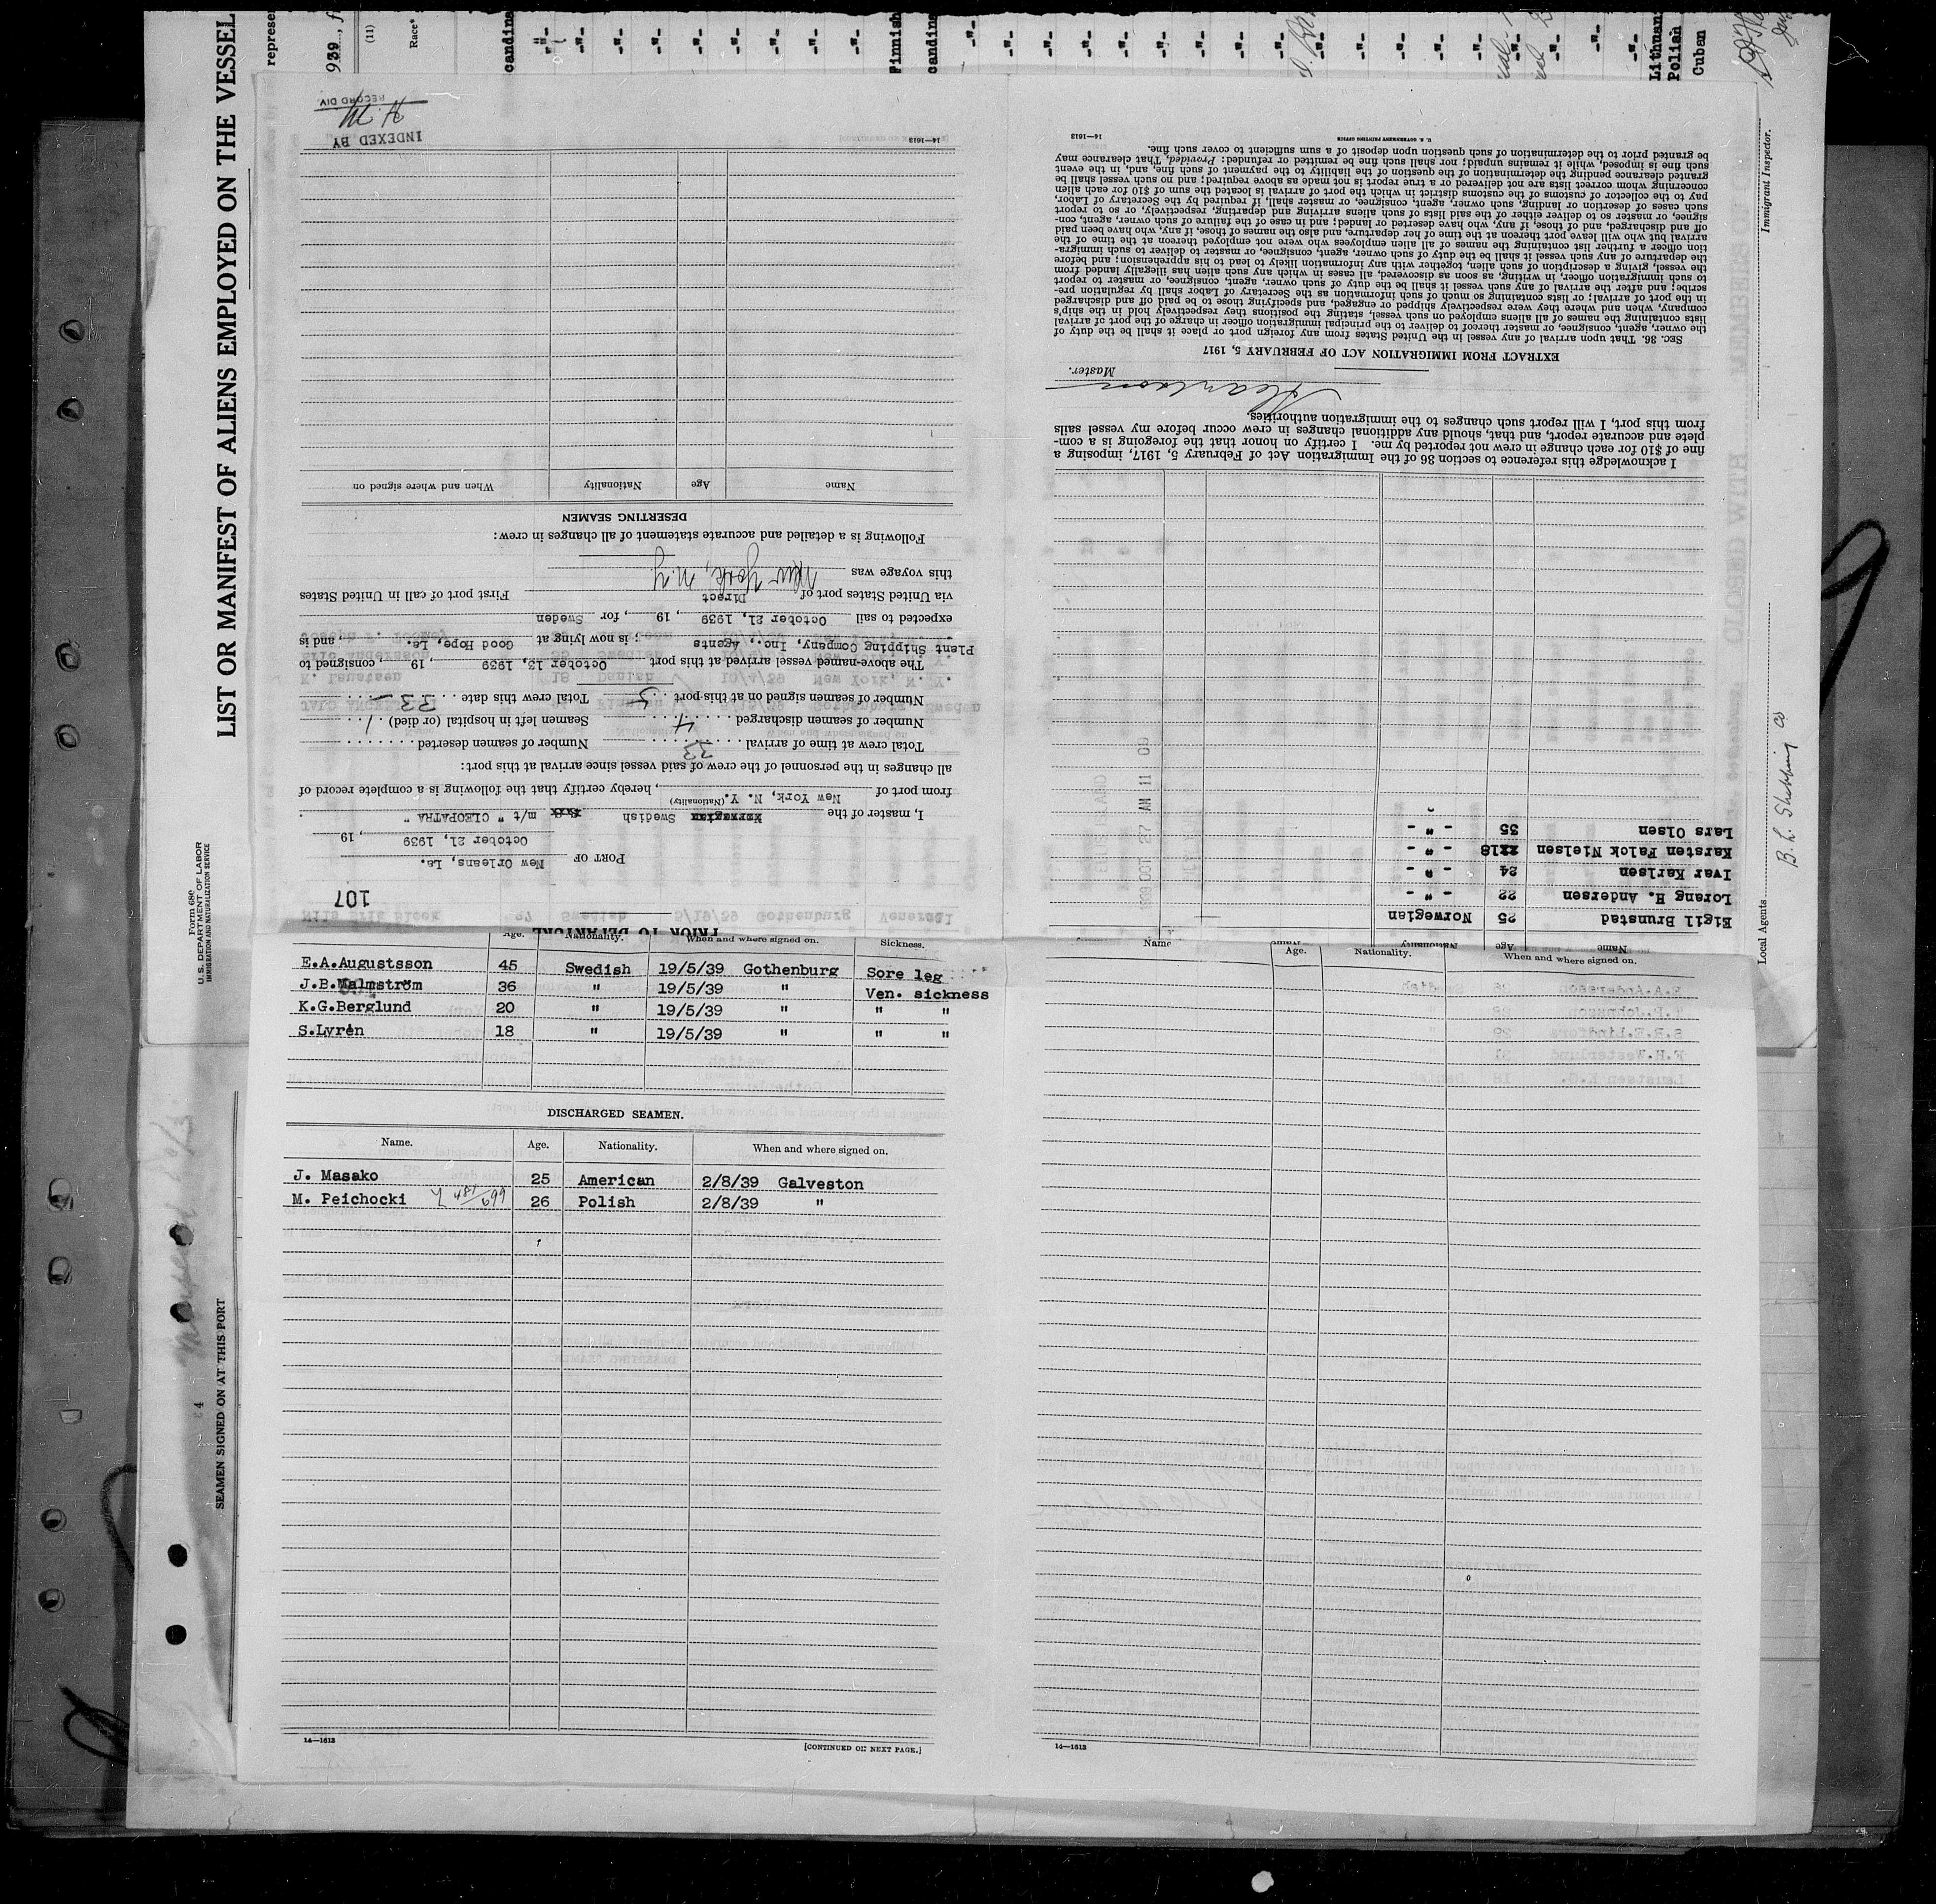 LIST OR MANIFEST OF ALIENS EMPLOYED ON THE VESSEL
Form 689
U.S. DEPARTMENT OF LABOR
IMMIGRATION AND NATURALIZATION SERVICE
SEAMEN SIGNED ON AT THIS PORT
represen
939, f
(11)
Race*
candina
-"-
-"-
-"-
-"-
-"-
-"-
-"-
-"-
-"-
Finnish
candina
Lithuan
Polish
Cuban
Immigrant Inspector.
Local Agents
B. L. Shipping Co
107
PORT OF New Orleans, La.
October 21, 1939, 19
I, master of the Norwegian Swedish m/t " CLEOPATRA "
(Nationality)
from port of New York, N. Y., hereby certify that the following is a complete record of
all changes in the personnel of the crew of said vessel since arrival at this port:
Total crew at time of arrival 33 Number of seamen deserted
Number of seamen discharged 4 Seamen left in hospital (or died) 1
Number of seamen signed on at this port 5 Total crew this date 33
The above-named vessel arrived at this port October 13, 1939, 19, consigned to
Plant Shipping Company, Inc., Agents; is now lying at Good Hope, La., and is
expected to sail October 21, 1939, 19, for Sweden
via United States port of Direct First port of call in United States
this voyage was New York, N.Y
Following is a detailed and accurate statement of all changes in crew:
DESERTING SEAMEN
Name Age Nationality When and where signed on
14—1613
INDEXED BY
M.H.
RECORD DIV.
Name Age Nationality
Eigil Brunstad 25 Norwegian
Lorang H. Andersen 22 - " -
Ivar Karlsen 24 - " -
Karsten Falck Nielsen 18 - " -
Lars Olsen 35 - " -
I acknowledge this reference to section 36 of the Immigration Act of February 5, 1917, imposing a
fine of $10 for each change in crew not reported by me. I certify on honor that the foregoing is a com-
plete and accurate report, and that, should any additional changes in crew occur before my vessel sails
from this port, I will report such changes to the immigration authorities.
Master.
EXTRACT FROM IMMIGRATION ACT OF FEBRUARY 5, 1917
SEC. 36. That upon arrival of any vessel in the United States from any foreign port or place it shall be the duty of
the owner, agent, consignee, or master thereof to deliver to the principal immigration officer in charge of the port of arrival
lists containing the names of all aliens employed on such vessel, stating the positions they respectively hold in the ship's
company, when and where they were respectively shipped or engaged, and specifying those to be paid off and discharged
in the port of arrival; or lists containing so much of such information as the Secretary of Labor shall by regulation pre-
scribe; and after the arrival of any such vessel it shall be the duty of such owner, agent, consignee, or master to report
to such immigration officer, in writing, as soon as discovered, all cases in which any such alien has illegally landed from
the vessel, giving a description of such alien, together with any information likely to lead to his apprehension; and before
the departure of any such vessel it shall be the duty of such owner, agent, consignee, or master to deliver to such immigra-
tion officer a further list containing the names of all alien employees who were not employed thereon at the time of the
arrival but who will leave port thereon at the time of her departure, and also the names of those, if any, who have been paid
off and discharged, and of those, if any, who have deserted or landed; and in case of the failure of such owner, agent, con-
signee, or master so to deliver either of the said lists of such aliens arriving and departing, respectively, or so to report
such cases of desertion or landing, such owner, agent, consignee, or master shall, if required by the Secretary of Labor,
pay to the collector of customs of the customs district in which the port of arrival is located the sum of $10 for each alien
concerning whom correct lists are not delivered or a true report is not made as above required; and no such vessel shall be
granted clearance pending the determination of the question of the liability to the payment of such fine, and, in the event
such fine is imposed, while it remains unpaid; nor shall such fine be remitted or refunded: Provided, That clearance may
be granted prior to the determination of such question upon deposit of a sum sufficient to cover such fine.
U. S. GOVERNMENT PRINTING OFFICE
14—1613
Age. Nationality. When and where signed on. Sickness.
E.A.Augustsson 45 Swedish 19/5/39 Gothenburg Sore leg
J.B.Malmström 36 " 19/5/39 " Ven. sickness
K.G.Berglund 20 " 19/5/39 " " "
S.Lyrén 18 " 19/5/39 " " "
DISCHARGED SEAMEN.
Name. Age. Nationality. When and where signed on.
J. Masako 25 American 2/8/39 Galveston
M. Peichocki 481/699 26 Polish 2/8/39 "
14—1613
[CONTINUED ON NEXT PAGE.]
Name Age. Nationality. When and where signed on.
14—1613